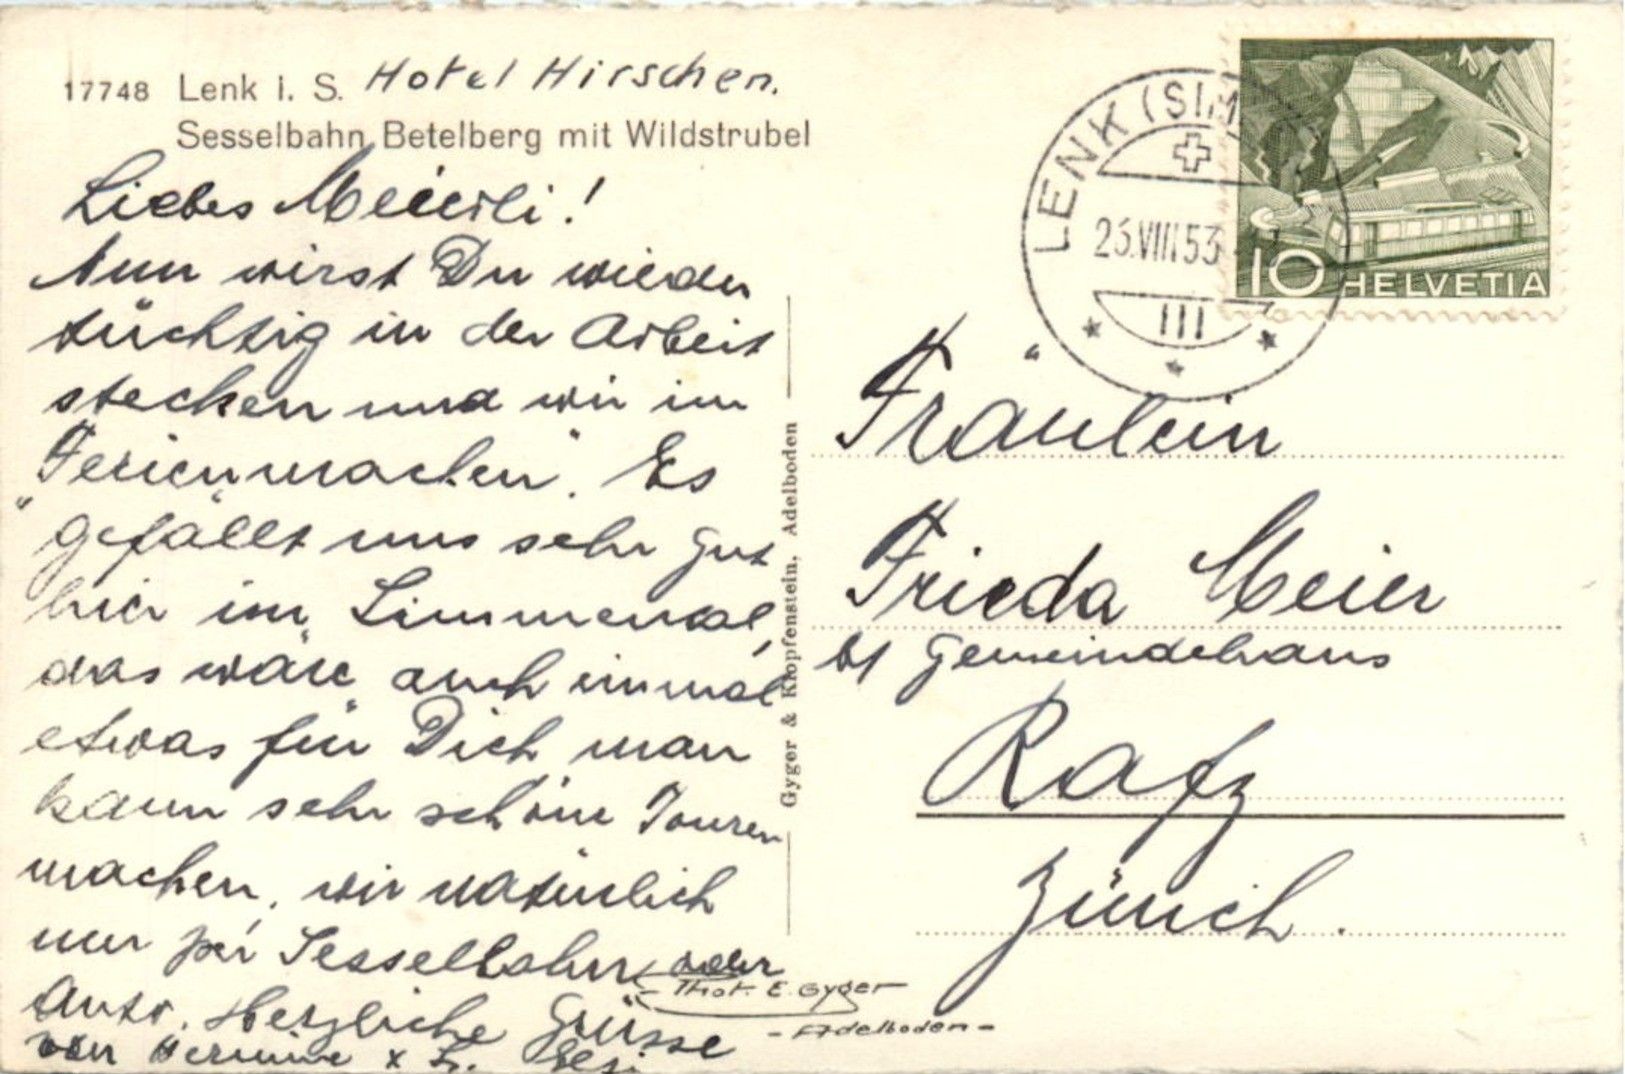 17748 Lenk i. S. Hotel Hirschen.
Sesselbahn Betelberg mit Wildstrubel
Liebes Meierli!
Nun wirst Du wieder
tüchtig in der Arbeit
stecken und wir im
"Ferienmachen". Es
gefällt uns sehr gut
hier im Simmental,
das wäre auch einmal
etwas für Dich man
kann sehr schöne Touren
machen, wir natürlich
nur per Sesselbahn oder
Auto. Herzliche Grüsse
von Hermine
Gyger & Klopfenstein, Adelboden
Phot. E. Gyger
- Adelboden -
LENK (SIM
23.VIII.53
III
10 HELVETIA
Fräulein
Frieda Meier
Gemeindehaus
Rafz
Zürich.